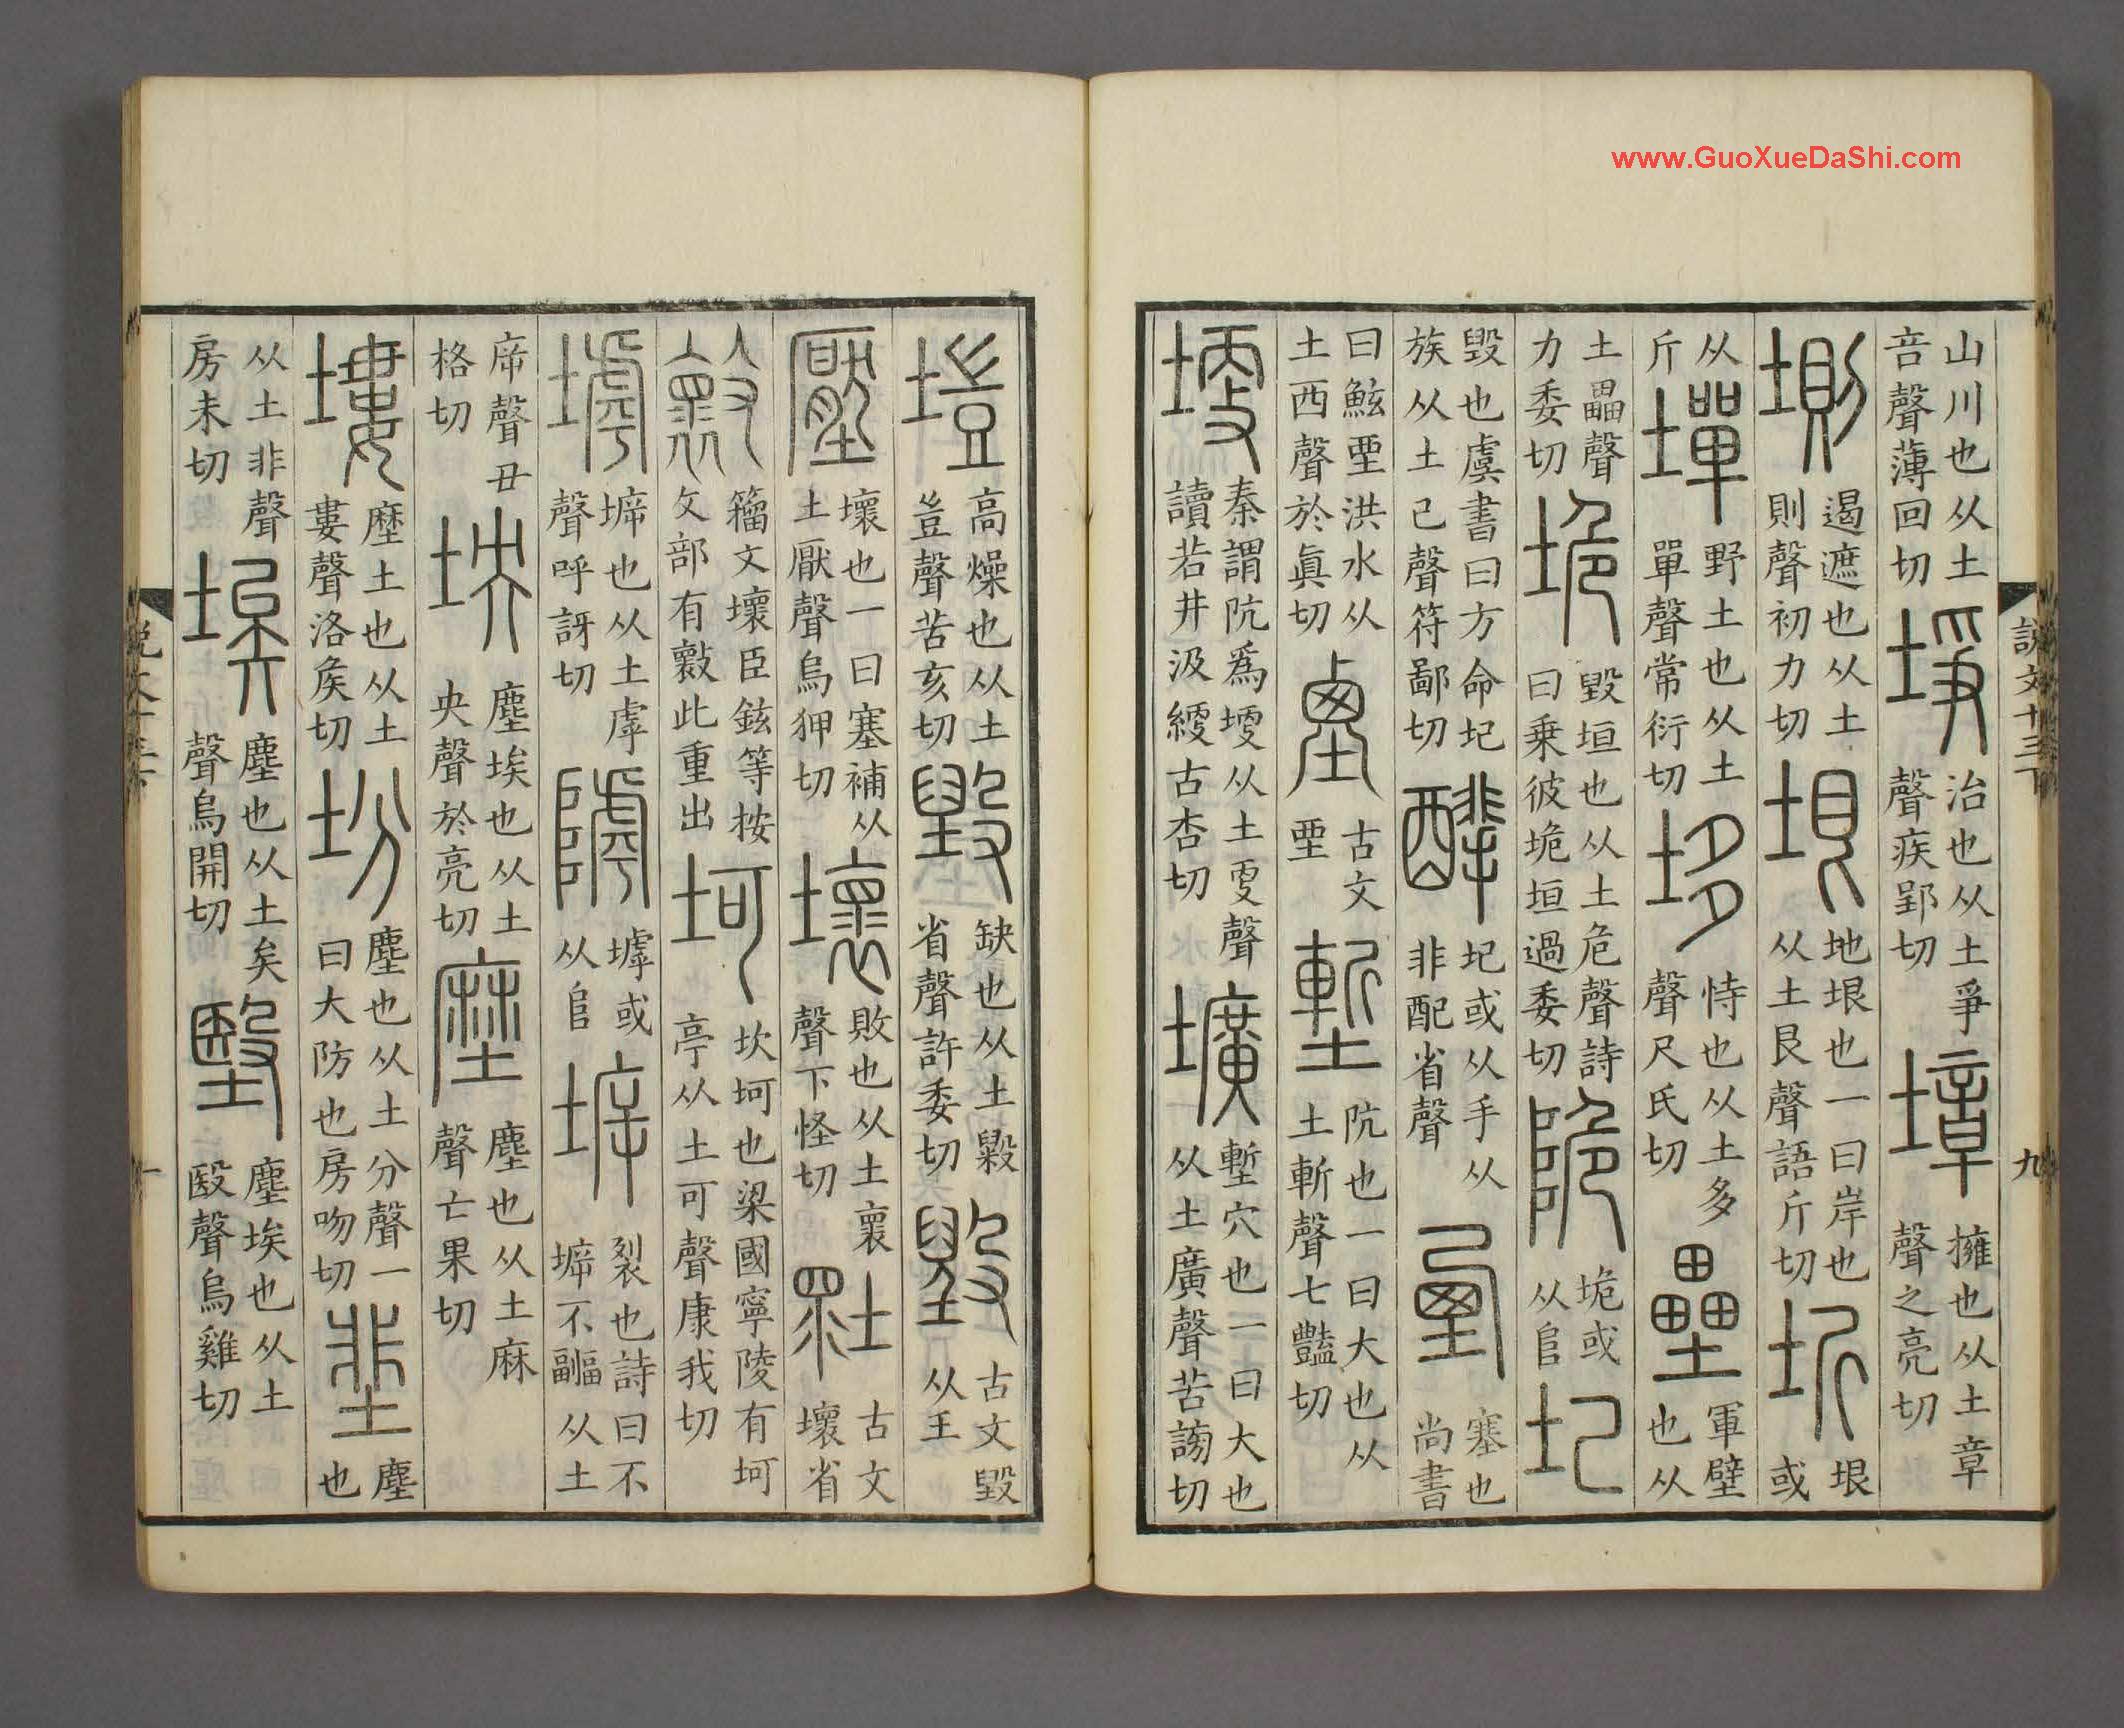 www.GuoXueDaShi.com
說文十三下 九
山川也从土咅聲薄回切 埩 治也从土爭聲疾郢切 墇 擁也从土章聲之亮切
𡍫 遏遮也从土則聲初力切 垠 地垠也一曰岸也从土艮聲語斤切 圻 垠或
从斤 墠 野土也从土單聲常衍切 垑 恃也从土多聲尺氏切 壘 軍壁也从
土畾聲力委切 垝 毀垣也从土危聲詩曰乗彼垝垣過委切 陒 垝或从𨸏 圮
毀也虞書曰方命圮族从土己聲符鄙切 圮或从手从非配省聲 垔 塞也尚書
曰鯀垔洪水从土西聲於眞切 古文垔 塹 阬也一曰大也从土斬聲七豔切
埂 秦謂阬爲埂从土更聲讀若井汲綆古杏切 壙 塹穴也一曰大也从土廣聲苦謗切
塏 高燥也从土豈聲苦亥切 毀 缺也从土毇省聲許委切 古文毀从王
壓 壞也一曰塞補从土厭聲烏狎切 壞 敗也从土褱聲下怪切 古文壞省
籒文壞臣鉉等按攵部有㱡此重出 坷 坎坷也梁國寧陵有坷亭从土可聲康我切
墟 㙤也从土虖聲呼訝切 罅 墟或从𨸏 㙤 裂也詩曰不㙤不疈从土
㡿聲丑格切 坱 塵埃也从土央聲於亮切 塺 塵也从土麻聲亡果切
塿 塺土也从土婁聲洛矦切 坋 塵也从土分聲一曰大防也房吻切 塵也
从土非聲房未切 埃 塵也从土矣聲烏開切 塵埃也从土殹聲烏雞切